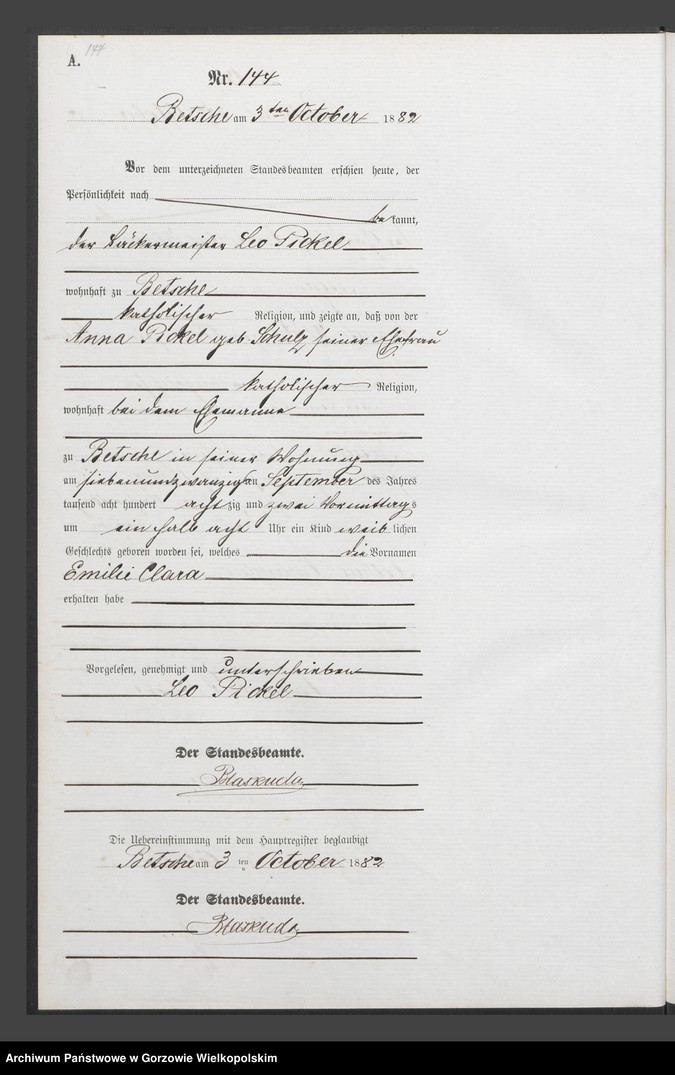 144
A.
Nr. 144
Betsche am 3ten October 1882
Vor dem unterzeichneten Standesbeamten erschien heute, der
Persönlichkeit nach
bekannt,
der Bäckermeister Leo Pickel
wohnhaft zu Betsche
katholischer Religion, und zeigte an, daß von der
Anna Pickel geb. Schulz seiner Ehefrau
katholischer Religion,
wohnhaft bei dem Ehemanne
zu Betsche in seiner Wohnung
am siebenundzwanzigsten September des Jahres
tausend acht hundert achtzig und zwei Vormittags
um ein halb acht Uhr ein Kind weiblichen
Geschlechts geboren worden sei, welches die Vornamen
Emilie Clara
erhalten habe
Vorgelesen, genehmigt und unterschrieben
Leo Pickel
Der Standesbeamte.
Blaskuda
Die Uebereinstimmung mit dem Hauptregister beglaubigt
Betsche am 3 ten October 1882
Der Standesbeamte.
Blaskuda
Archiwum Państwowe w Gorzowie Wielkopolskim